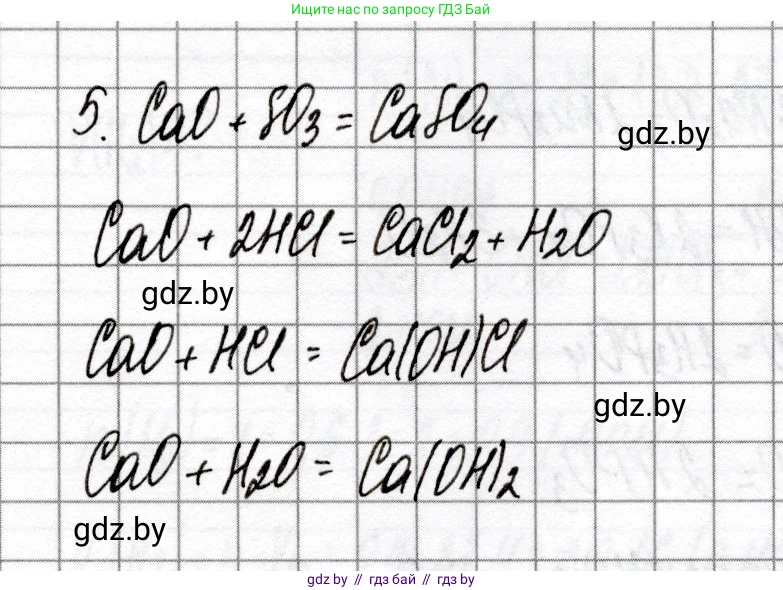 Ищите нас по запросу ГДЗ Бай
5. CaO + SO3 = CaSO4
gdz.by
CaO + 2HCl = CaCl2 + H2O
gdz.by
CaO + HCl = Ca(OH)Cl
gdz.by
CaO + H2O = Ca(OH)2
gdz.by
gdz.by // гдз бай // гдз by